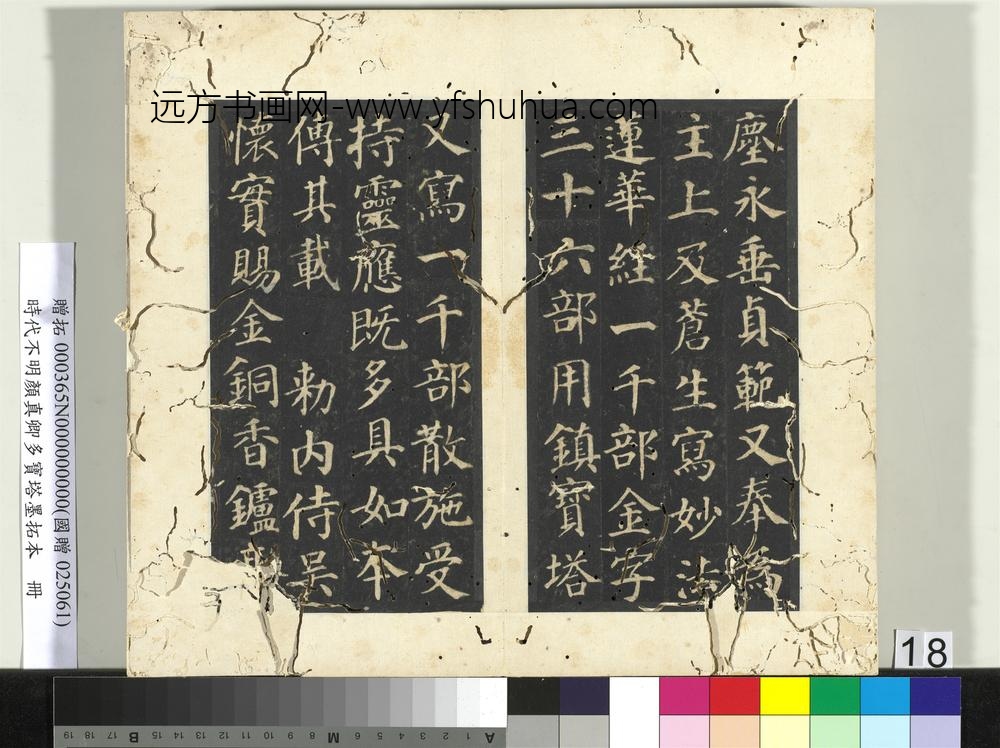 远方书画网-www.yfshuhua.com
塵永垂貞範又奉為
主上及蒼生寫妙法
蓮華經一千部金字
三十六部用鎮寶塔
又寫一千部散施受
持靈應既多具如本
傳其載 勑内侍吳
懷實賜金銅香鑪
贈拓 000365N000000000(國贈 025061)
時代不明顏真卿多寶塔墨拓本 冊
18
19 18 17 16 15 14 13 12 11 10 9 8 7 6 5 4 3 2 1
B M A